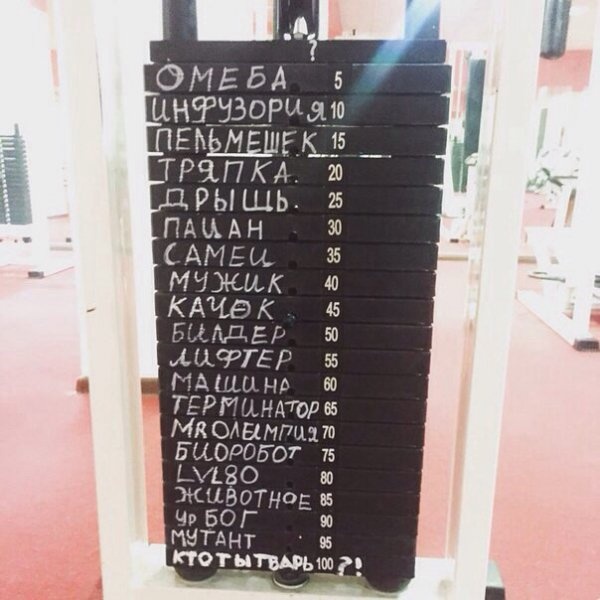 ?
ОМЕБА 5
ИНФУЗОРИЯ 10
ПЕЛЬМЕШЕК 15
ТРЯПКА. 20
ДРЫЩЬ. 25
ПАЦАН 30
САМЕЦ 35
МУЖИК 40
КАЧОК 45
БИЛДЕР 50
ЛИФТЕР 55
МАШИНА 60
ТЕРМИНАТОР 65
MR ОЛЕМПИЯ 70
БИОРОБОТ 75
LVL80 80
ЖИВОТНОЕ 85
УР БОГ 90
МУТАНТ 95
КТО ТЫ ТВАРЬ 100 ?!